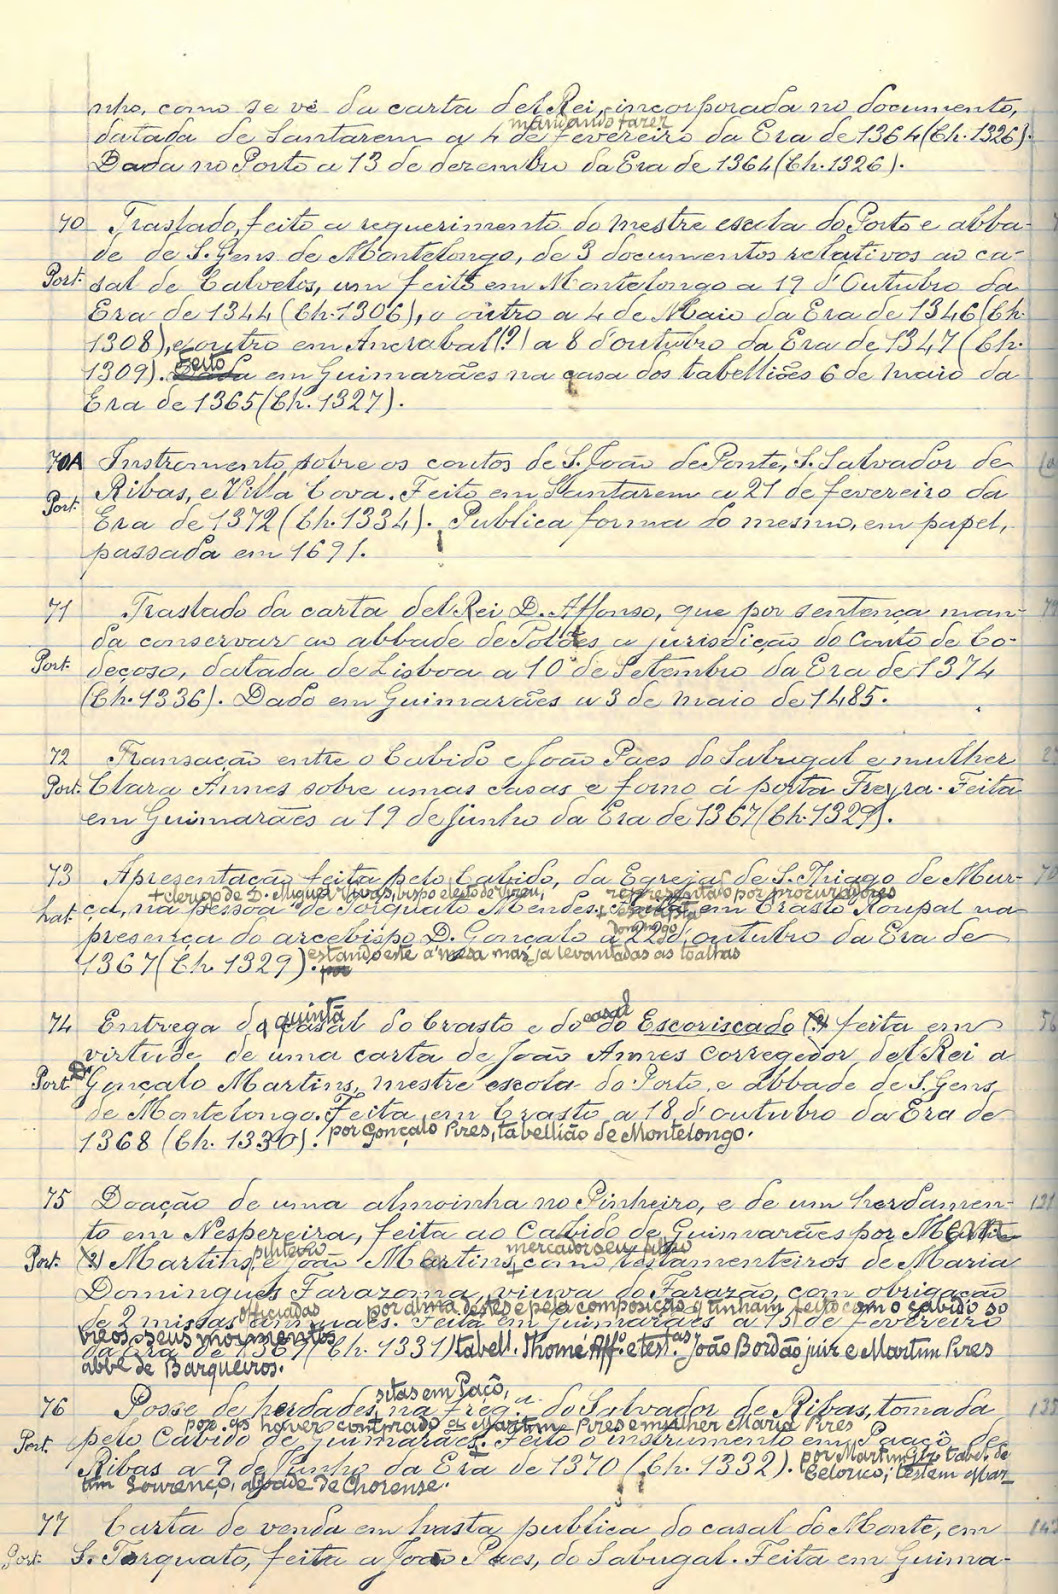 nho, como se vê da carta del Rei, incorporada no documento,
mandando fazer
datada de Santarem a 4 de fevereiro da Era de 1364 (Ch. 1326).
Dada no Porto a 13 de dezembro da Era de 1364 (Ch. 1326).
70 Traslado, feito a requerimento do mestre escola do Porto e abba-
de de S. Gens de Montelongo, de 3 documentos relativos ao ca-
Port. sal de Calvelos, um feito em Montelongo a 19 d'Outubro da
Era de 1344 (Ch. 1306), o outro a 4 de Maio da Era de 1346 (Ch.
1308), e outro em Ancrabal (?) a 8 d'outubro da Era de 1347 (Ch.
feito
1309). Dada em Guimarães na casa dos tabelliães 6 de maio da
Era de 1365 (Ch. 1327).
70A Instromento sobre os coutos de S. João de Ponte, S. Salvador de
Port. Ribas, e Villa Cova. Feito em Santarem a 21 de fevereiro da
Era de 1372 (Ch. 1334). Publica forma do mesmo, em papel,
passada em 1691.
71 Traslado da carta del Rei D. Affonso, que por sentença man-
da conservar ao abbade de a jurisdição do Couto de Co-
Port. deçoso, datada de Lisboa a 10 de Setembro da Era de 1374
(Ch. 1336). Dado em Guimarães a 3 de maio de 1485.
72 Transação entre o Cabido e João Paes do Sabugal e mulher
Port. Clara Annes sobre umas casas e forno á porta Freyra. Feita
em Guimarães a 19 de Junho da Era de 1367 (Ch. 1329).
73 Apresentação feita pelo Cabido, da Egreja de S. Thiago de Mur-
+ clerigo de D. Miguel Vivas, bispo eleito de Vizeu, representado por procuradores
lat. ça, na pessoa de Torquato Mendes. em Crasto Roupal na
domingo
presença do arcebispo D. Gonçalo a 22 d'outubro da Era de
1367 (Ch. 1329) estando este á mesa mas já levantadas as toalhas
quintã casal
74 Entrega da casal do Crasto e do do Escoriscado (?) feita em
virtude de uma carta de João Annes corregedor del Rei a
Port. D. Gonçalo Martins, mestre escola do Porto e abbade de S. Gens
de Montelongo. Feita em Crasto a 18 d'outubro da Era de
1368 (Ch. 1330). por Gonçalo Pires, tabellião de Montelongo.
75 Doação de uma almoinha no Pinheiro, e de um herdamen-
to em Nespereira, feita ao Cabido de Guimarães por
mercador seu filho
Port. (?) Martins, e João Martins, como testamenteiros de Maria
Domingues Farazona, viuva do Farazão, com obrigação
officiadas por alma destes e pela composição q tinham feito com o cabido so
de 2 missas annuaes. Feita em Guimarães a 15 de fevereiro
bre os seus moimentos
da Era de 1369 (Ch. 1331) tabell. Thomé Aff.º e test.as João Bordão juiz e Martim Pires
abb.e de Barqueiros.
sitas em Paçô,
76 Posse de herdades, na freg.a do Salvador de Ribas, tomada
por as haver comprado a Martim Pires e mulher Maria Pires
Port. pelo Cabido de Guimarães. Feito o instrumento em Paaçô de
Ribas a 9 de Junho da Era de 1370 (Ch. 1332). por Martim Giz tabel. de
Celorico; testem. Mar-
tim Lourenço, abbade de Chorense.
77 Carta de venda em hasta publica do casal do Monte, em
Port. S. Torquato, feita a João Paes, do Sabugal. Feita em Guima-